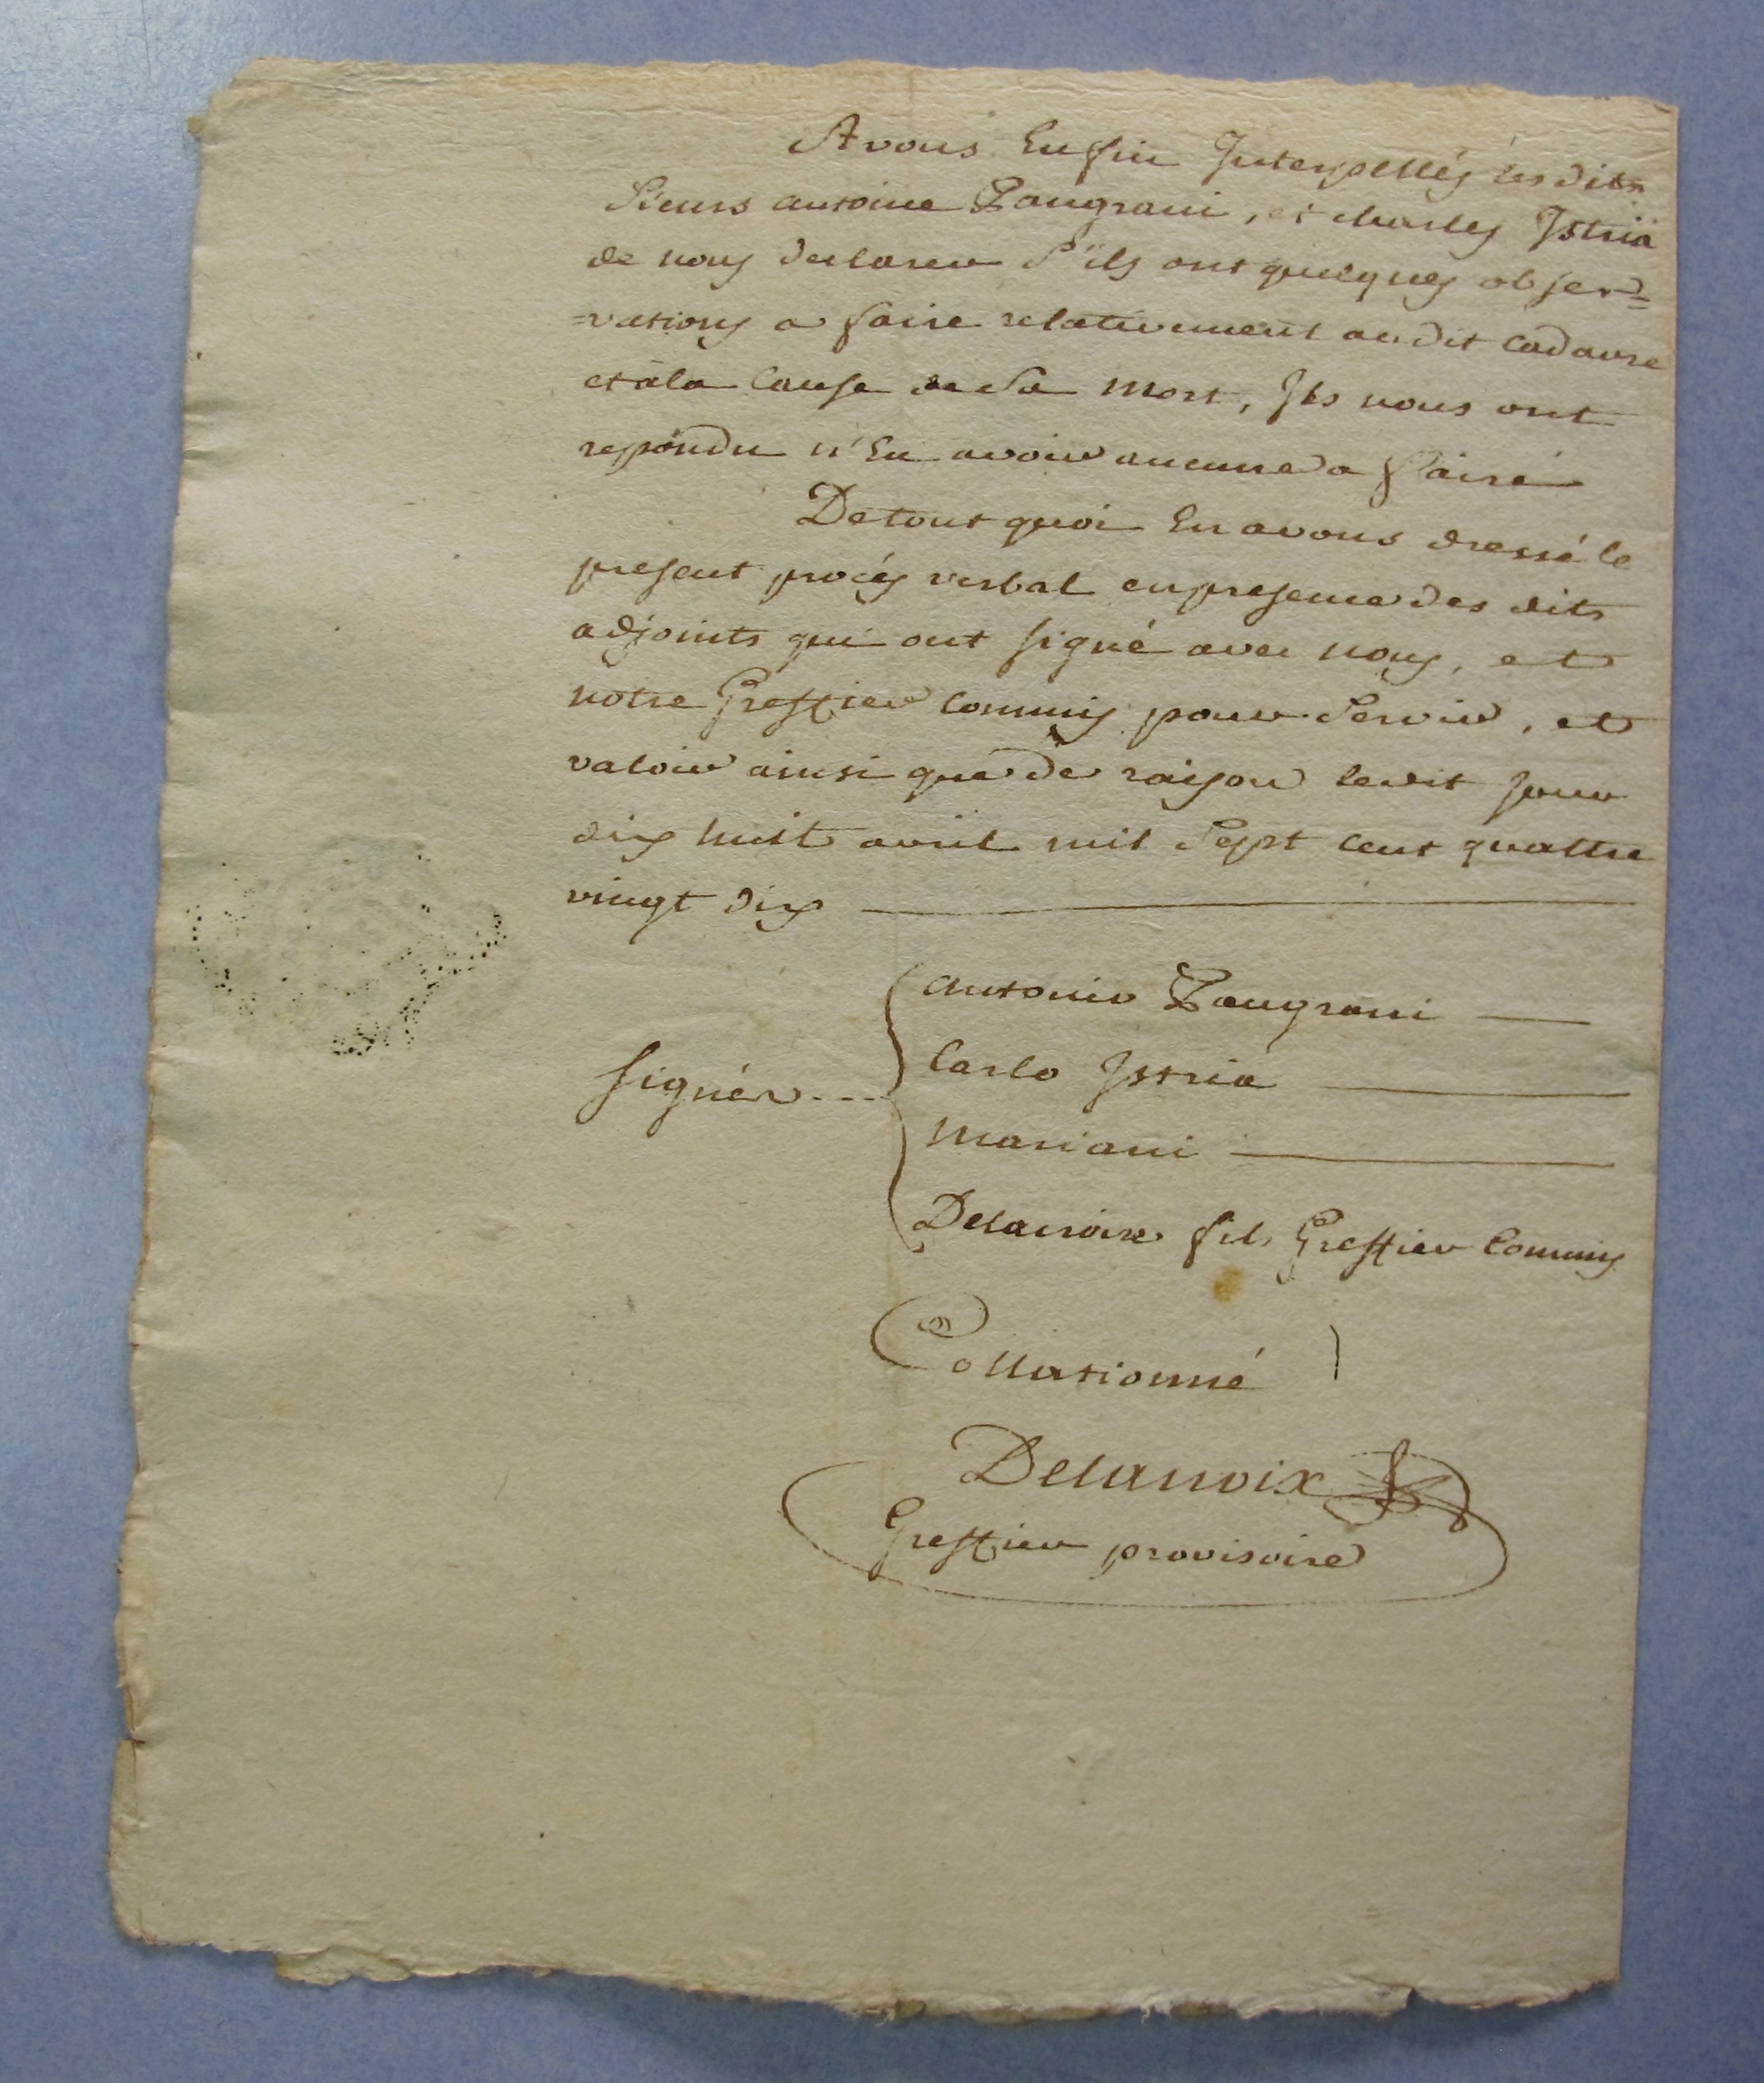 Avons Enfin Interpellés lesdits
Sieurs antoine Zangrani, et charles Istria
de nous declarer s'ils ont quelques obser=
=vations a faire relativement audit cadavre
et à la cause de sa mort, Ils nous ont
repondu n'En avoir aucune a faire
De tout quoi En avons dressé le
present procés verbal en presence des dits
adjoints qui ont signé avec nous, et
notre Greffier commis pour servir, et
valoir ainsi que de raison ledit jour
dix huit avril mil sept cent quattre
vingt dix
signés... antonio Zangrani
Carlo Istria
Mariani
Delacroix fils Greffier Commis
Collationné
Delacroix
Greffier provisoire